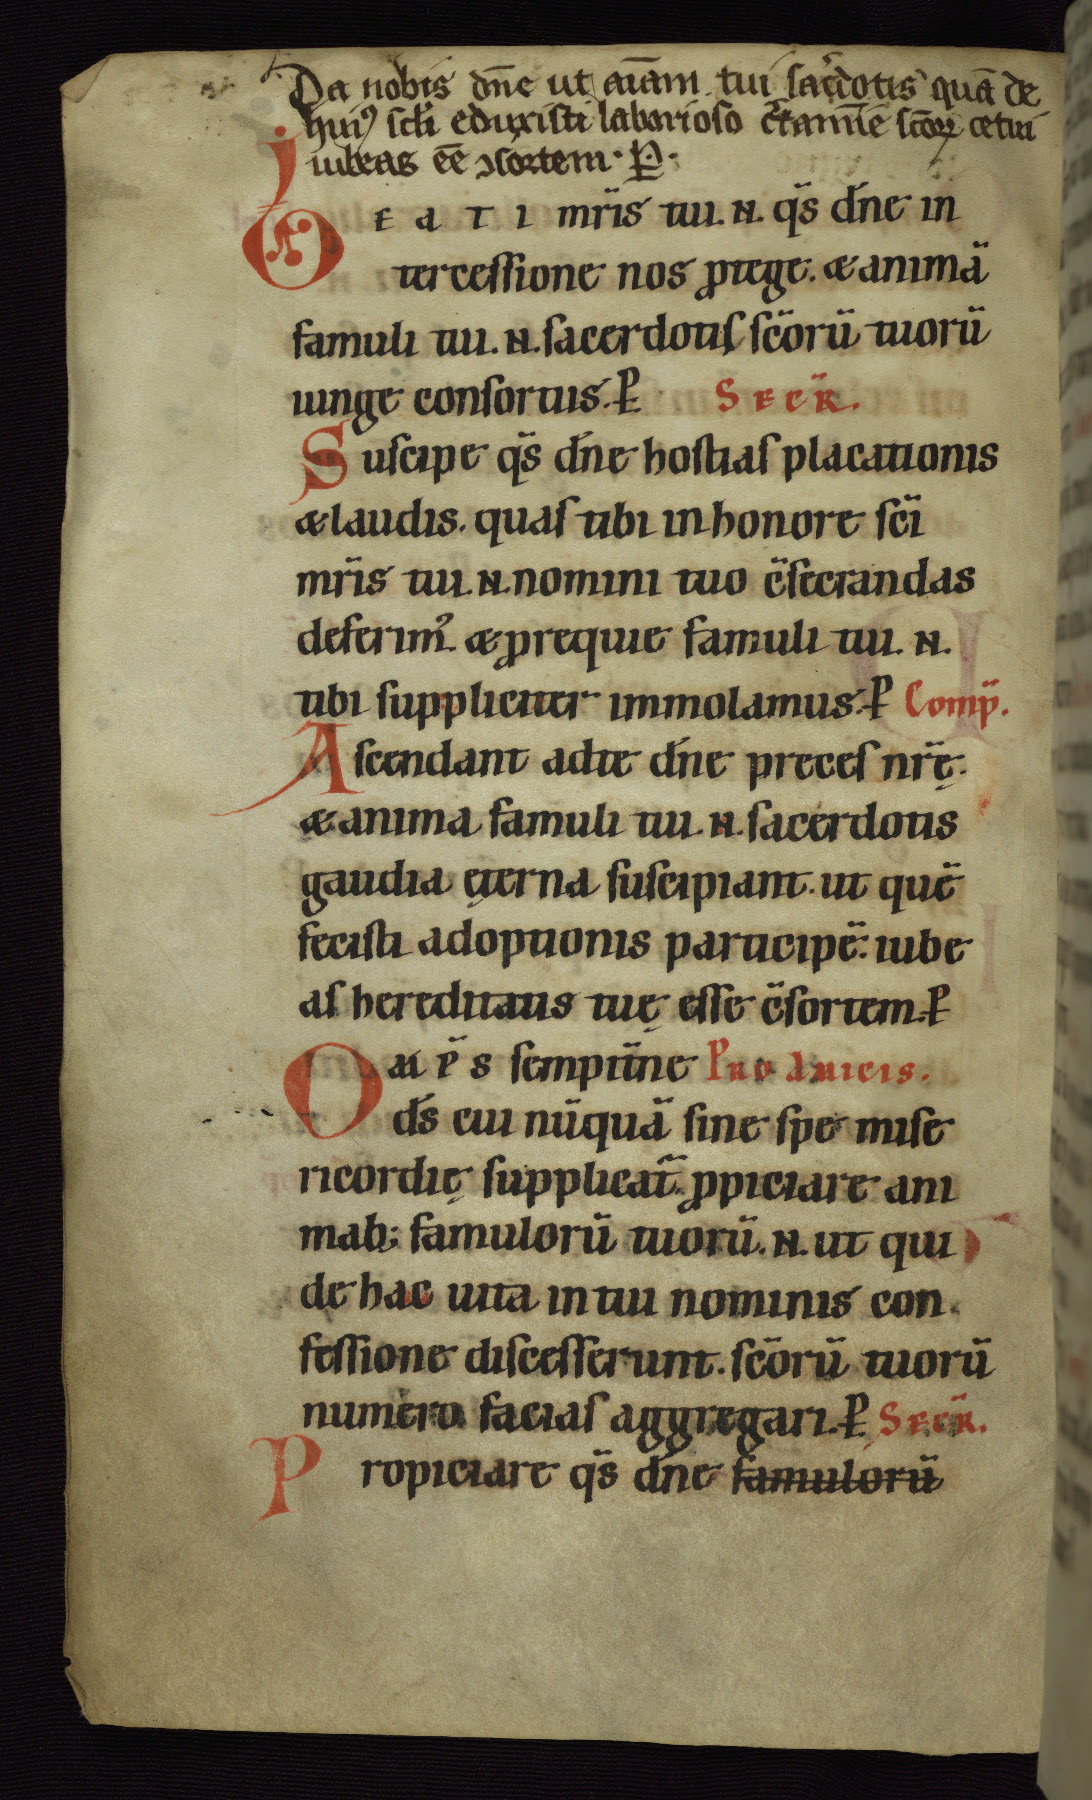 Da nobis dn̄e ut aīam tui sac̄dotis quā de
huiꝰ scl̄i eduxisti laborioso c̄tamīe sc̄oꝝ cetui
iubeas eē ꝯsortem. P.
BEATI mr̄is tui. N. qs̄ dn̄e in
tercessione nos ꝓtege. & animā
famuli tui. N. sacerdotis sc̄orū tuorū
iunge consortiis. P Secr̄.
Suscipe qs̄ dn̄e hostias placationis
& laudis. quas tibi in honore sc̄i
mr̄is tui. N. nomini tuo c̄secrandas
deferimꝰ. & ꝓ requie famuli tui. N.
tibi suppliciter immolamus. P Comp̄.
Ascendant ad te dn̄e preces nr̄ę.
& anima famuli tui. N. sacerdotis
gaudia ęterna suscipiant. ut quē
fecisti adoptionis participē. iube
as hereditatis tuę esse c̄sortem. P
Om̄ps sempit̄ne Pro amicis.
ds̄ cui nūquā sine spe mise
ricordię supplicat᷑. ꝓpiciare ani
mab; famulorū tuorū. N. ut qui
de hac uita in tui nominis con
fessione discesserunt. sc̄orū tuorū
numero facias aggregari. P Secr̄.
Propiciare qs̄ dn̄e famulorū